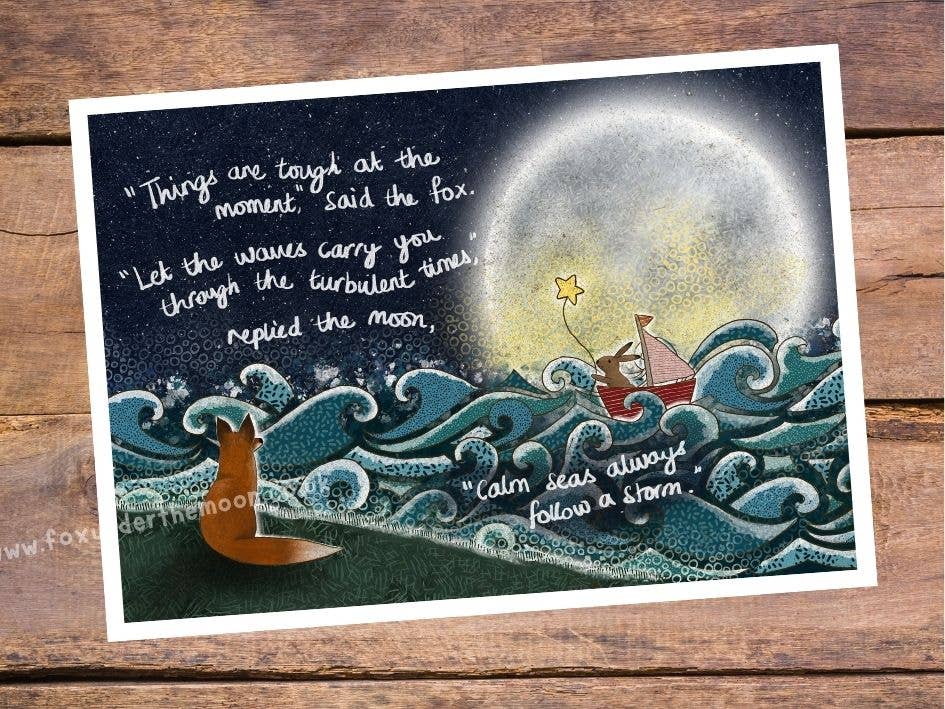 "Things are tough at the
moment," said the fox.
"Let the waves carry you
through the turbulent times,"
replied the moon,
"Calm seas always
follow a storm."
www.foxunderthemoon.co.uk